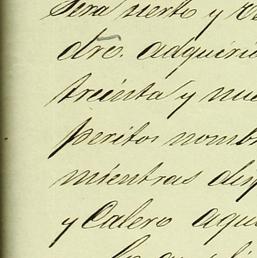 Sera cierto y ve
dro. adquirid
treinta y nue
peritos nomb
mientras dis
y Calero aqu